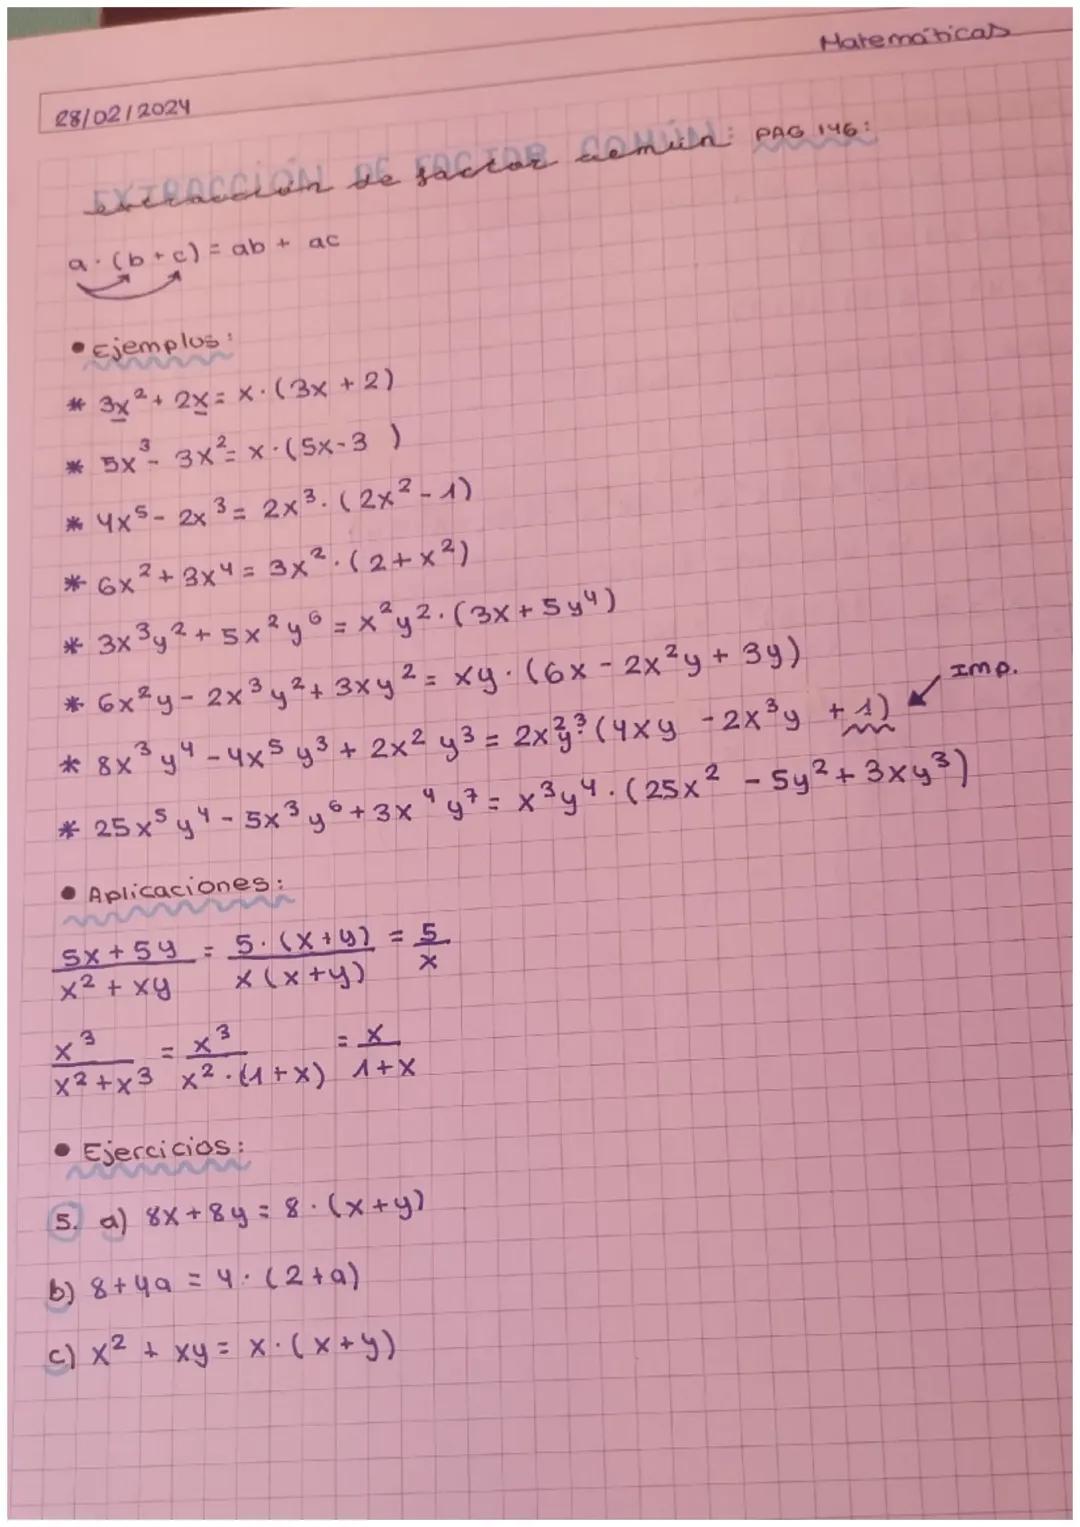 Matemáticas
28/02/2024
EXTRACCIÓN DE FACTOR COMÚN: PAG 146:
extracción de factor común
a · (b + c) = ab + ac
• Ejemplos:
* 3x² + 2x = x · (3x + 2)
* 5x³ - 3x² = x · (5x - 3 )
* 4x⁵ - 2x³ = 2x³ · (2x² - 1)
* 6x² + 3x⁴ = 3x² · (2 + x²)
* 3x³y² + 5x²y⁶ = x²y² · (3x + 5y⁴)
* 6x²y - 2x³y² + 3xy² = xy · (6x - 2x²y + 3y)
Imp.
* 8x³y⁴ - 4x⁵y³ + 2x²y³ = 2x²y³ · (4xy - 2x³y + 1)
* 25x⁵y⁴ - 5x³y⁶ + 3x⁴y⁷ = x³y⁴ · (25x² - 5y² + 3xy³)
• Aplicaciones:
5x + 5y = 5 · (x + y) = 5
x² + xy x (x + y) x
x³ = x³ = x
x² + x³ x² · (1 + x) 1 + x
• Ejercicios:
5. a) 8x + 8y = 8 · (x + y)
b) 8 + 4a = 4 · (2 + a)
c) x² + xy = x · (x + y)